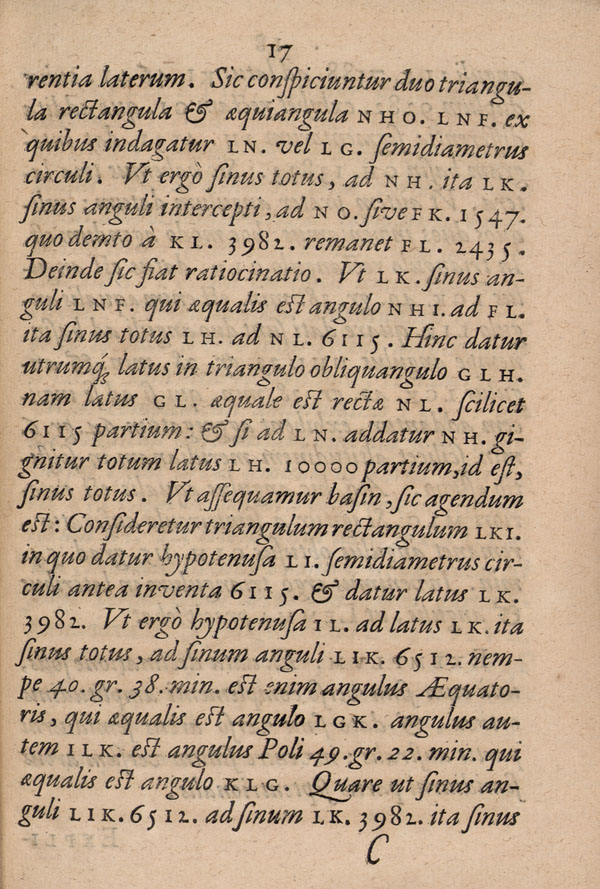 17
rentia laterum. Sic conſpiciuntur duo triangu-
la rectangula & æquiangula NHO. LNF. ex
quibus indagatur LN. vel LG. ſemidiametrus
circuli. Vt ergò ſinus totus, ad NH. ita LK.
ſinus anguli intercepti, ad NO. ſive FK. 1547.
quo demto à KL. 3982. remanet FL. 2435.
Deinde ſic fiat ratiocinatio. Vt LK. ſinus an-
guli LNF. qui æqualis est angulo NHI. ad FL.
ita ſinus totus LH. ad NL. 6115. Hinc datur
utrumq́; latus in triangulo obliquangulo GLH.
nam latus GL. æquale est rectæ NL. ſcilicet
6115 partium: & ſi ad LN. addatur NH. gi-
gnitur totum latus LH. 10000 partium, id est,
ſinus totus. Vt aſſequamur baſin, ſic agendum
est: Conſideretur triangulum rectangulum LKI.
in quo datur hypotenuſa LI. ſemidiametrus cir-
culi antea inventa 6115. & datur latus LK.
3982. Vt ergò hypotenuſa IL. ad latus LK. ita
ſinus totus, ad ſinum anguli LIK. 6512. nem-
pe 40. gr. 38. min. est enim angulus Æquato-
ris, qui æqualis est angulo LGK. angulus au-
tem ILK. est angulus Poli 49. gr. 22. min. qui
æqualis est angulo KLG. Quare ut ſinus an-
guli LIK. 6512. ad ſinum LK. 3982. ita ſinus
C